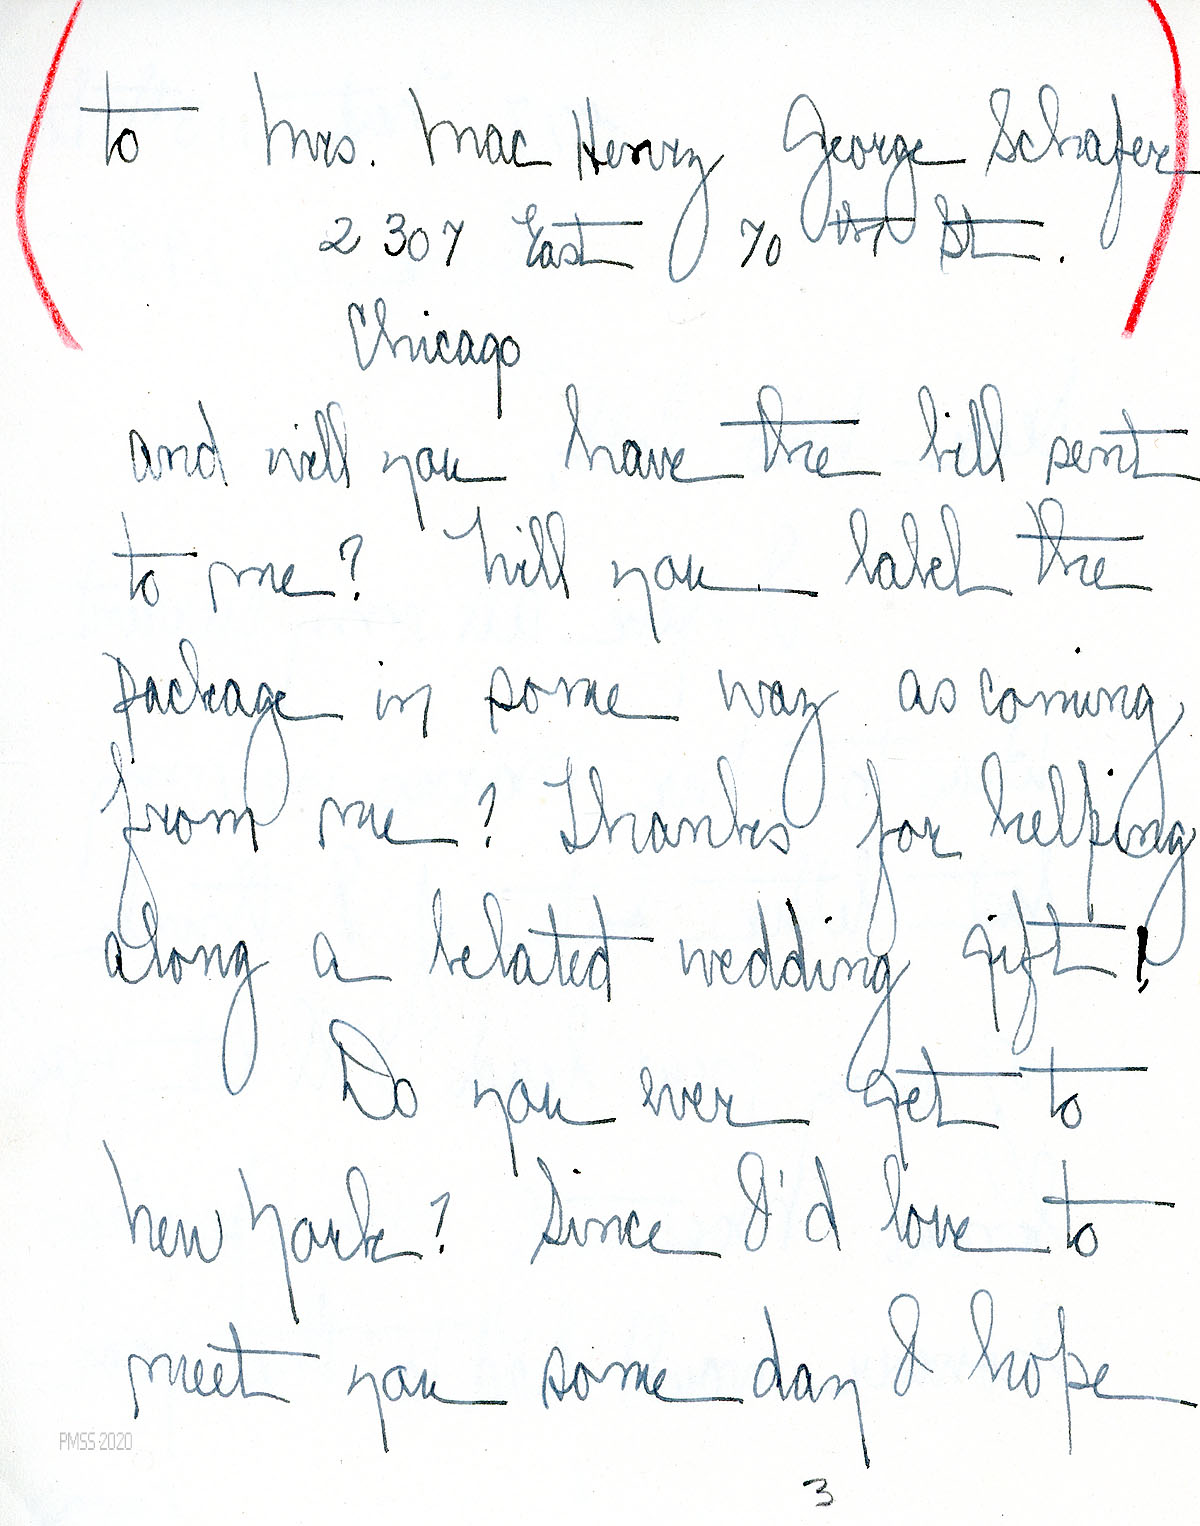 to Mrs. Mac Henry George Schafer
2307 East 70th St.
Chicago
and will you have the bill sent
to me? Will you label the
package in some way as coming
from me? Thanks for helping
along a belated wedding gift!
Do you ever get to
New York? Since I'd love to
meet you some day I hope
PMSS 2020
3